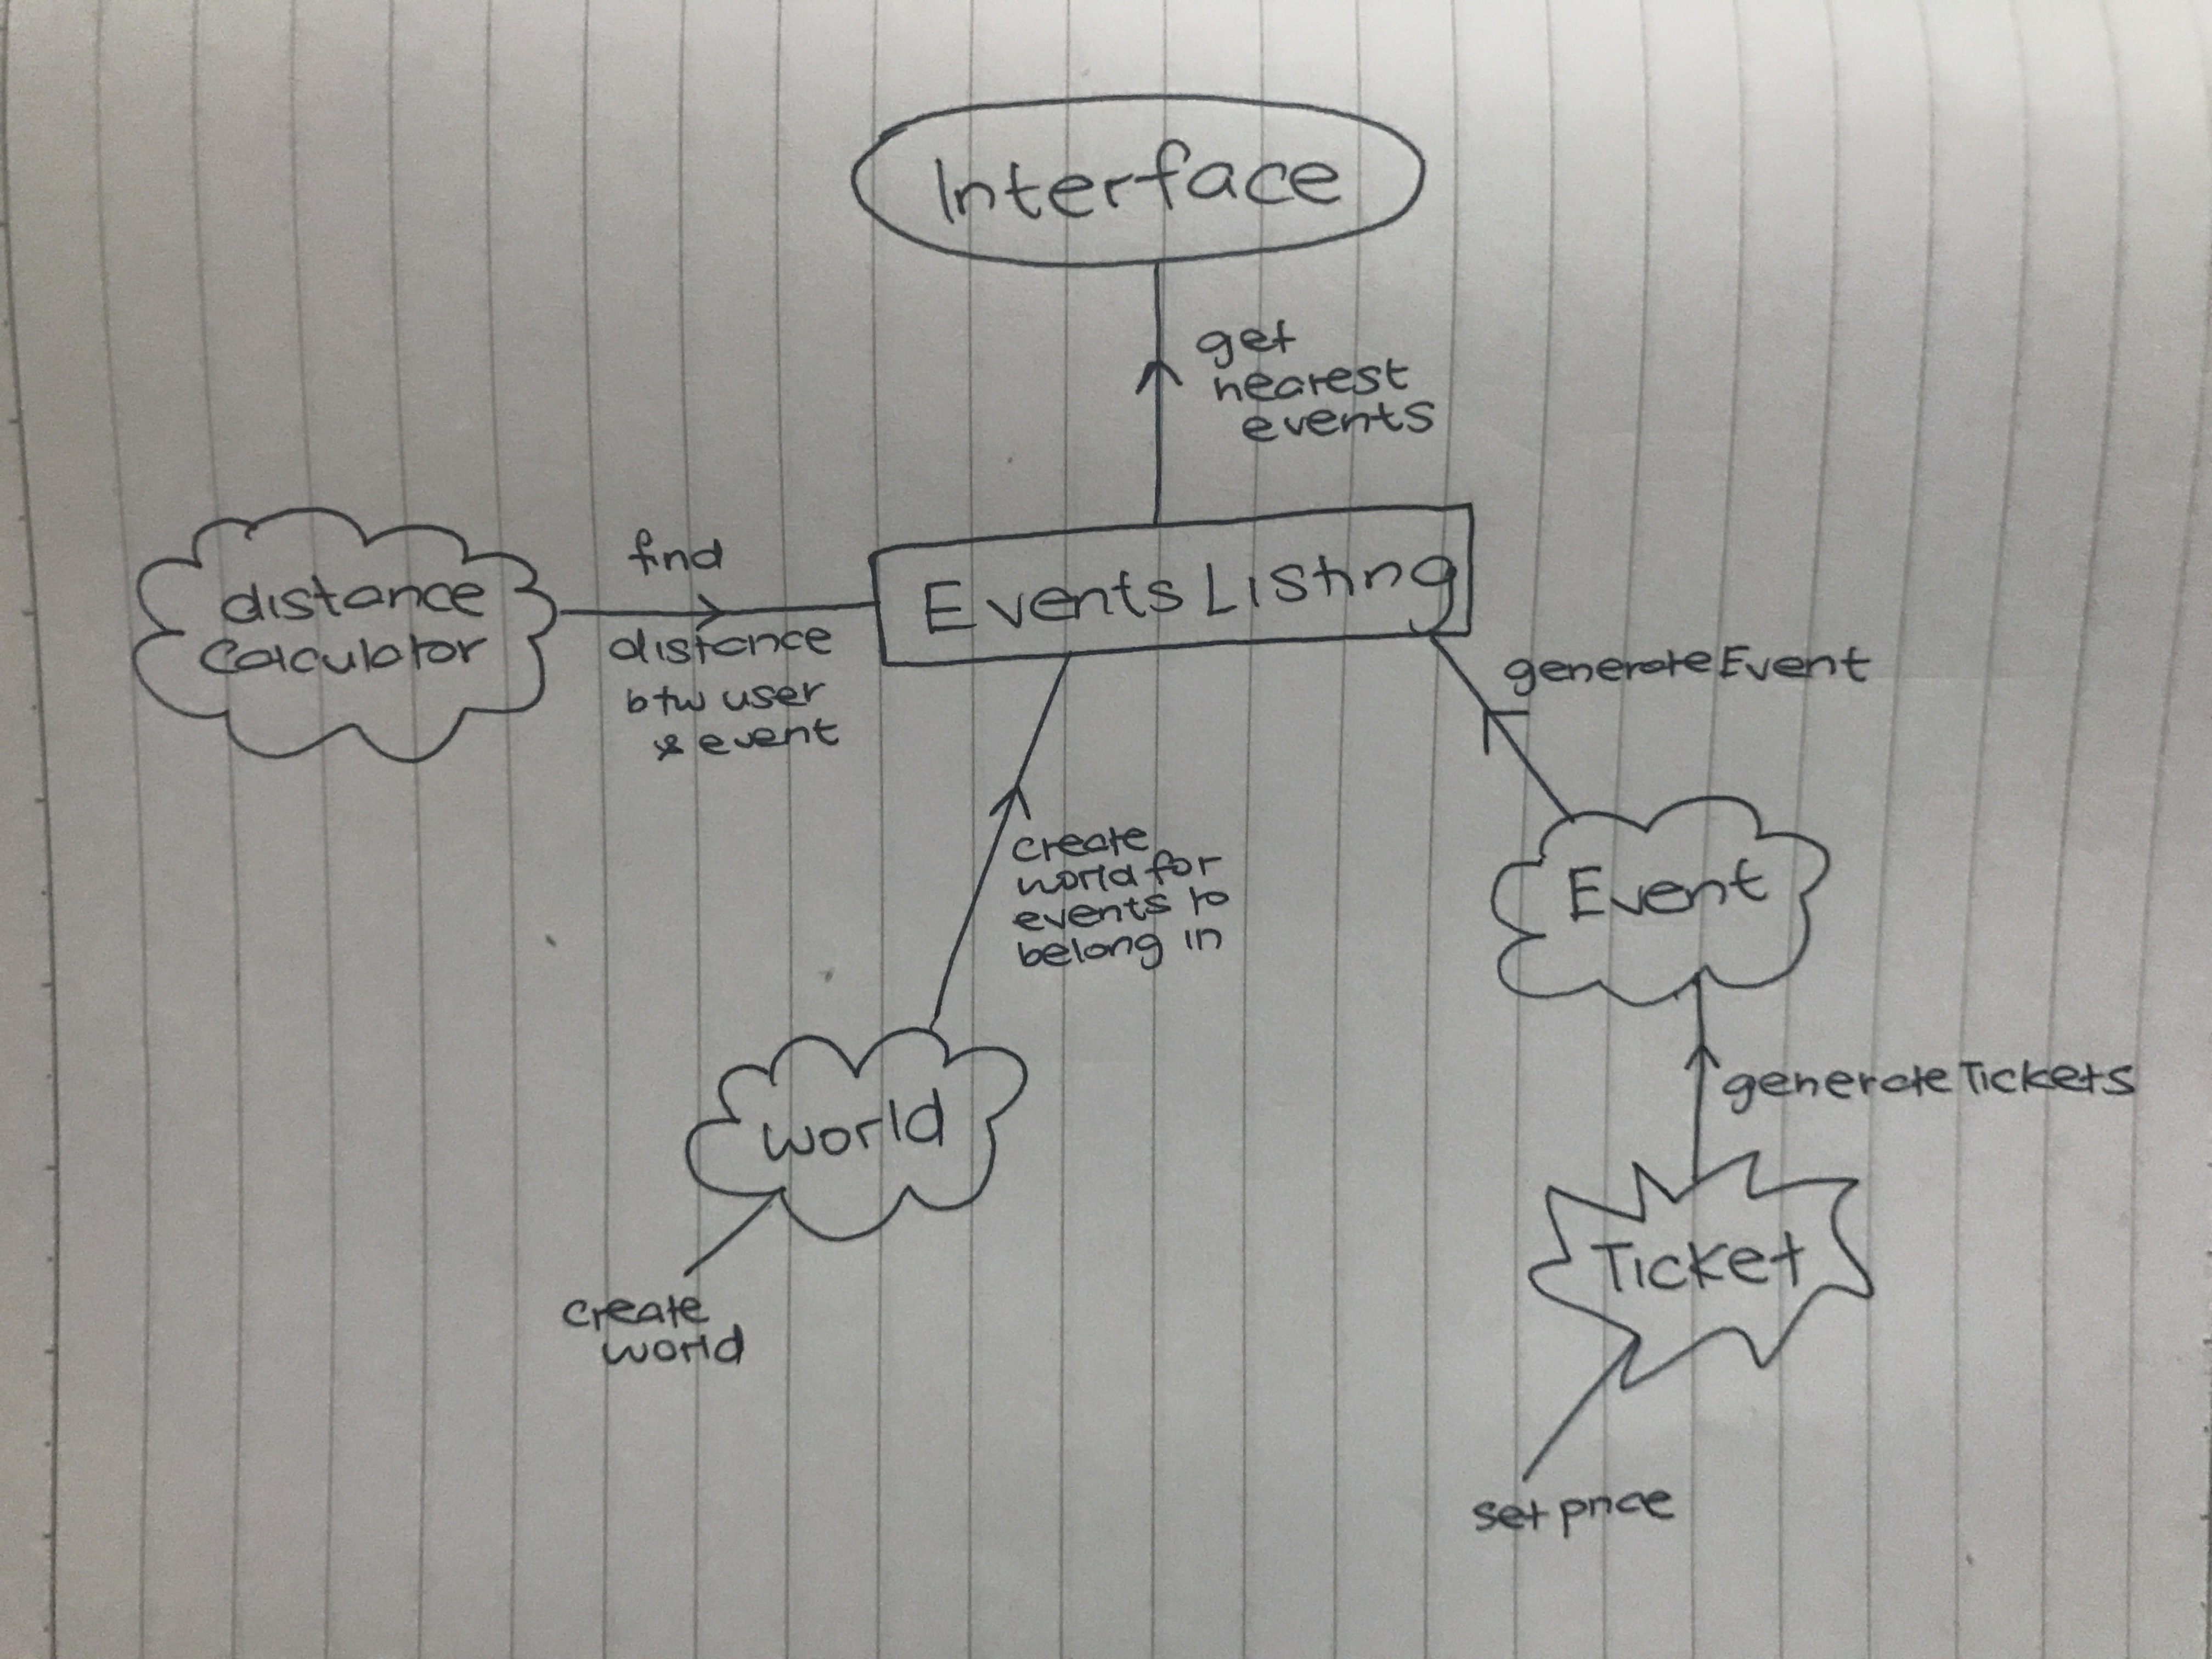 Interface
get
nearest
events
find
distance
btw user
& event
distance
calculator
Events Listing
generateEvent
create
world for
events to
belong in
Event
world
generateTickets
create
world
Ticket
set price